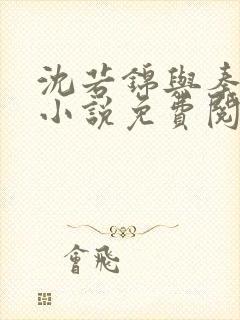 沈若錦與秦
小說免費閱
會飛